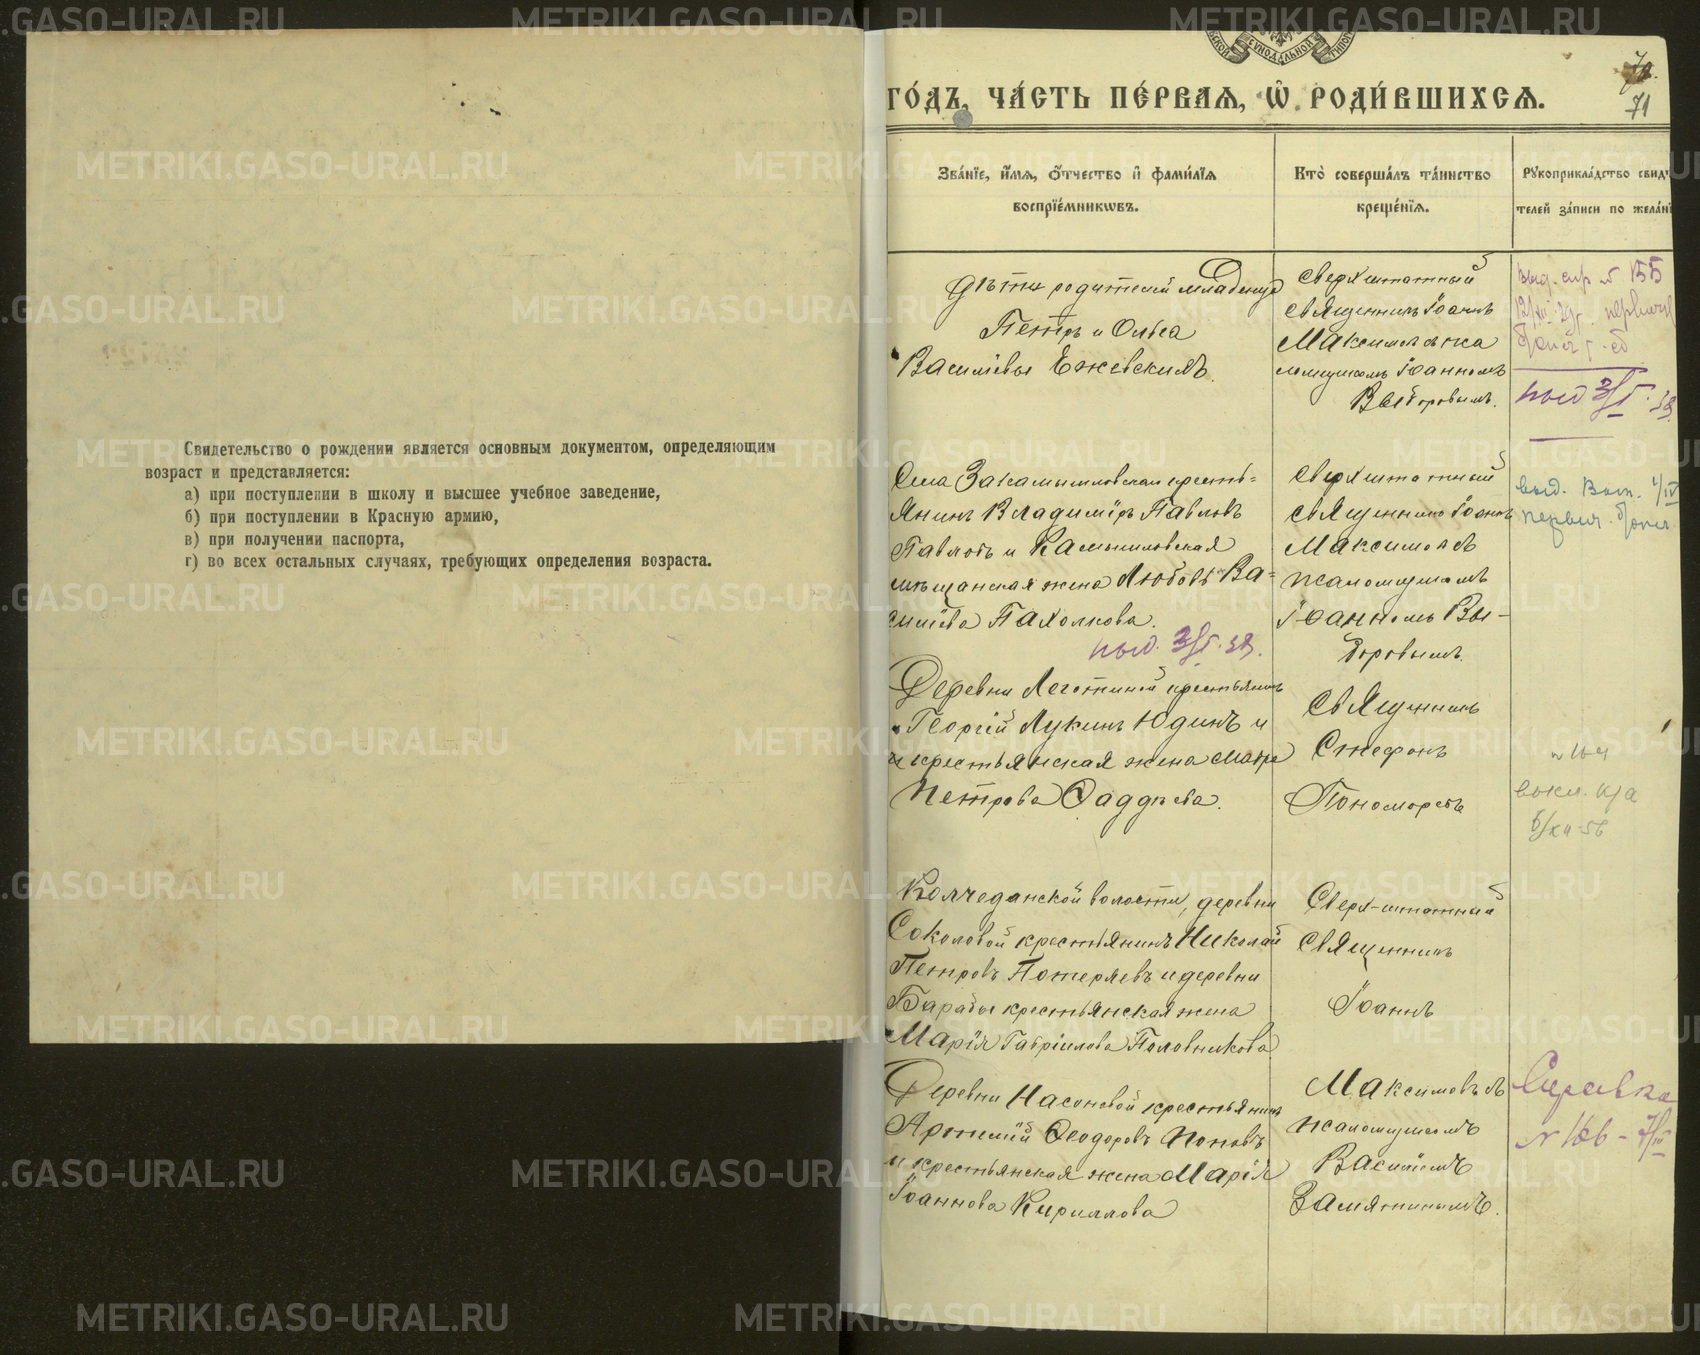 Свидетельство о рождении является основным документом, определяющим
возраст и представляется:
а) при поступлении в школу и высшее учебное заведение,
б) при поступлении в Красную армию,
в) при получении паспорта,
г) во всех остальных случаях, требующих определения возраста.
70.
71
го́дъ, ча́сть пе́рвая, ѡ҆ роди́вшихся.
Зва́нїе, и҆́мя, ѻ҆́тчество и҆ фами́лїя
воспрїе́мникѡвъ.
Кто̀ соверша́лъ та́инство
креще́нїя.
Рꙋкоприкла́дство свид
телей за́писи по жела́н
Дѣти родителей младенца
Петръ и Ольга
Василіевы Ежевскимъ.
Сверхштатный
священникъ Іоаннъ
Максимовъ
псаломщикомъ Іоанномъ
Выборовымъ.
Села Закамышловскаго кресть=
янинъ Владиміръ Павловъ
Павловъ и Камышловская
мѣщанская жена Любовь Ва=
силіева Пахолкова.
Сверхштатный
священникъ Іоаннъ
Максимовъ
псаломщикомъ
Іоанномъ Вы-
боровымъ.
Деревни Леготиной крестьянинъ
Георгій Лукинъ Юдинъ и
крестьянская жена
Петрова Фаддѣева.
Священникъ
Стефанъ
Пономаревъ
Колчеданской волости, деревни
Соколовой крестьянинъ Николай
Петровъ Потеряевъ и деревни
Барабы крестьянская жена
Марія Гавріилова Половникова
Сверх-штатный
священникъ
Іоаннъ
Деревни Насоновой крестьянинъ
Артемій Ѳеодоровъ Поповъ
и крестьянская жена Марія
Іоаннова Кириллова
Максимовъ съ
псаломщикомъ
Василіемъ
Замятинымъ.
Справка
N 166 -
METRIKI.GASO-URAL.RU